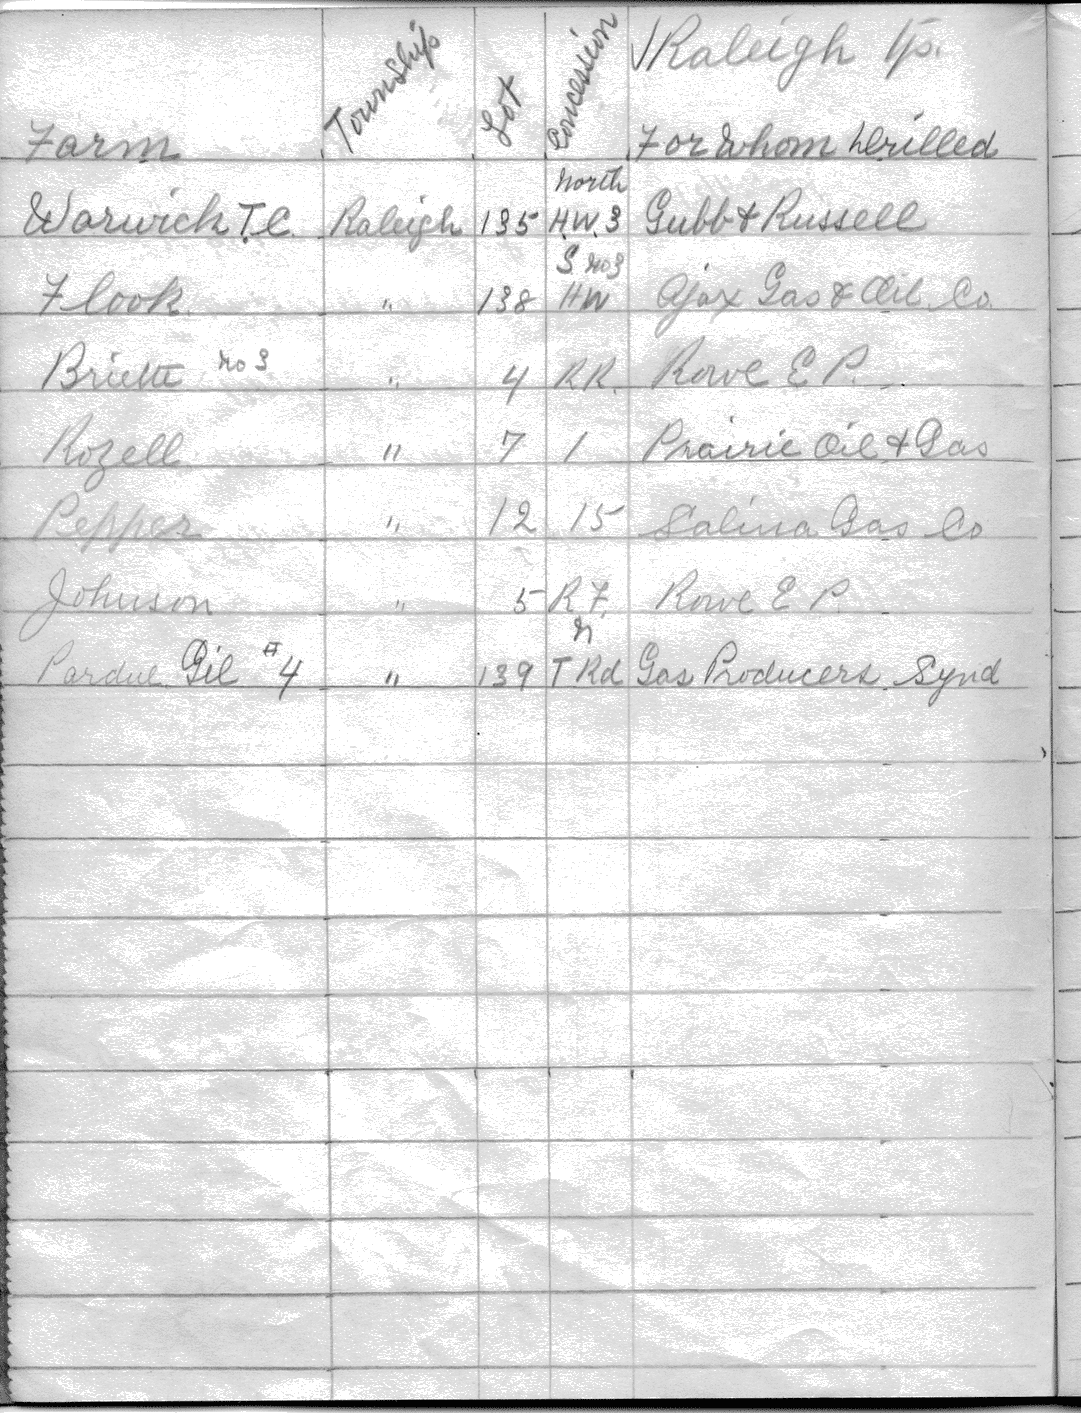 √Raleigh Tp.
Farm Township Lot Concession For Whom Drilled
Warwick T.C. Raleigh 135 North H.W. 3 Gubb & Russell
Flook " 138 S No 3 HW Ajax Gas & Oil Co.
No 3 " 4 RR. Rowe E P.
Rozell " 7 1 Prairie Oil & Gas
Pepper " 12 15 Salina Gas Co
Johnson " 5 R F. Rowe E P.
Pardue Gil #4 " 139 N. T Rd Gas Producers Synd